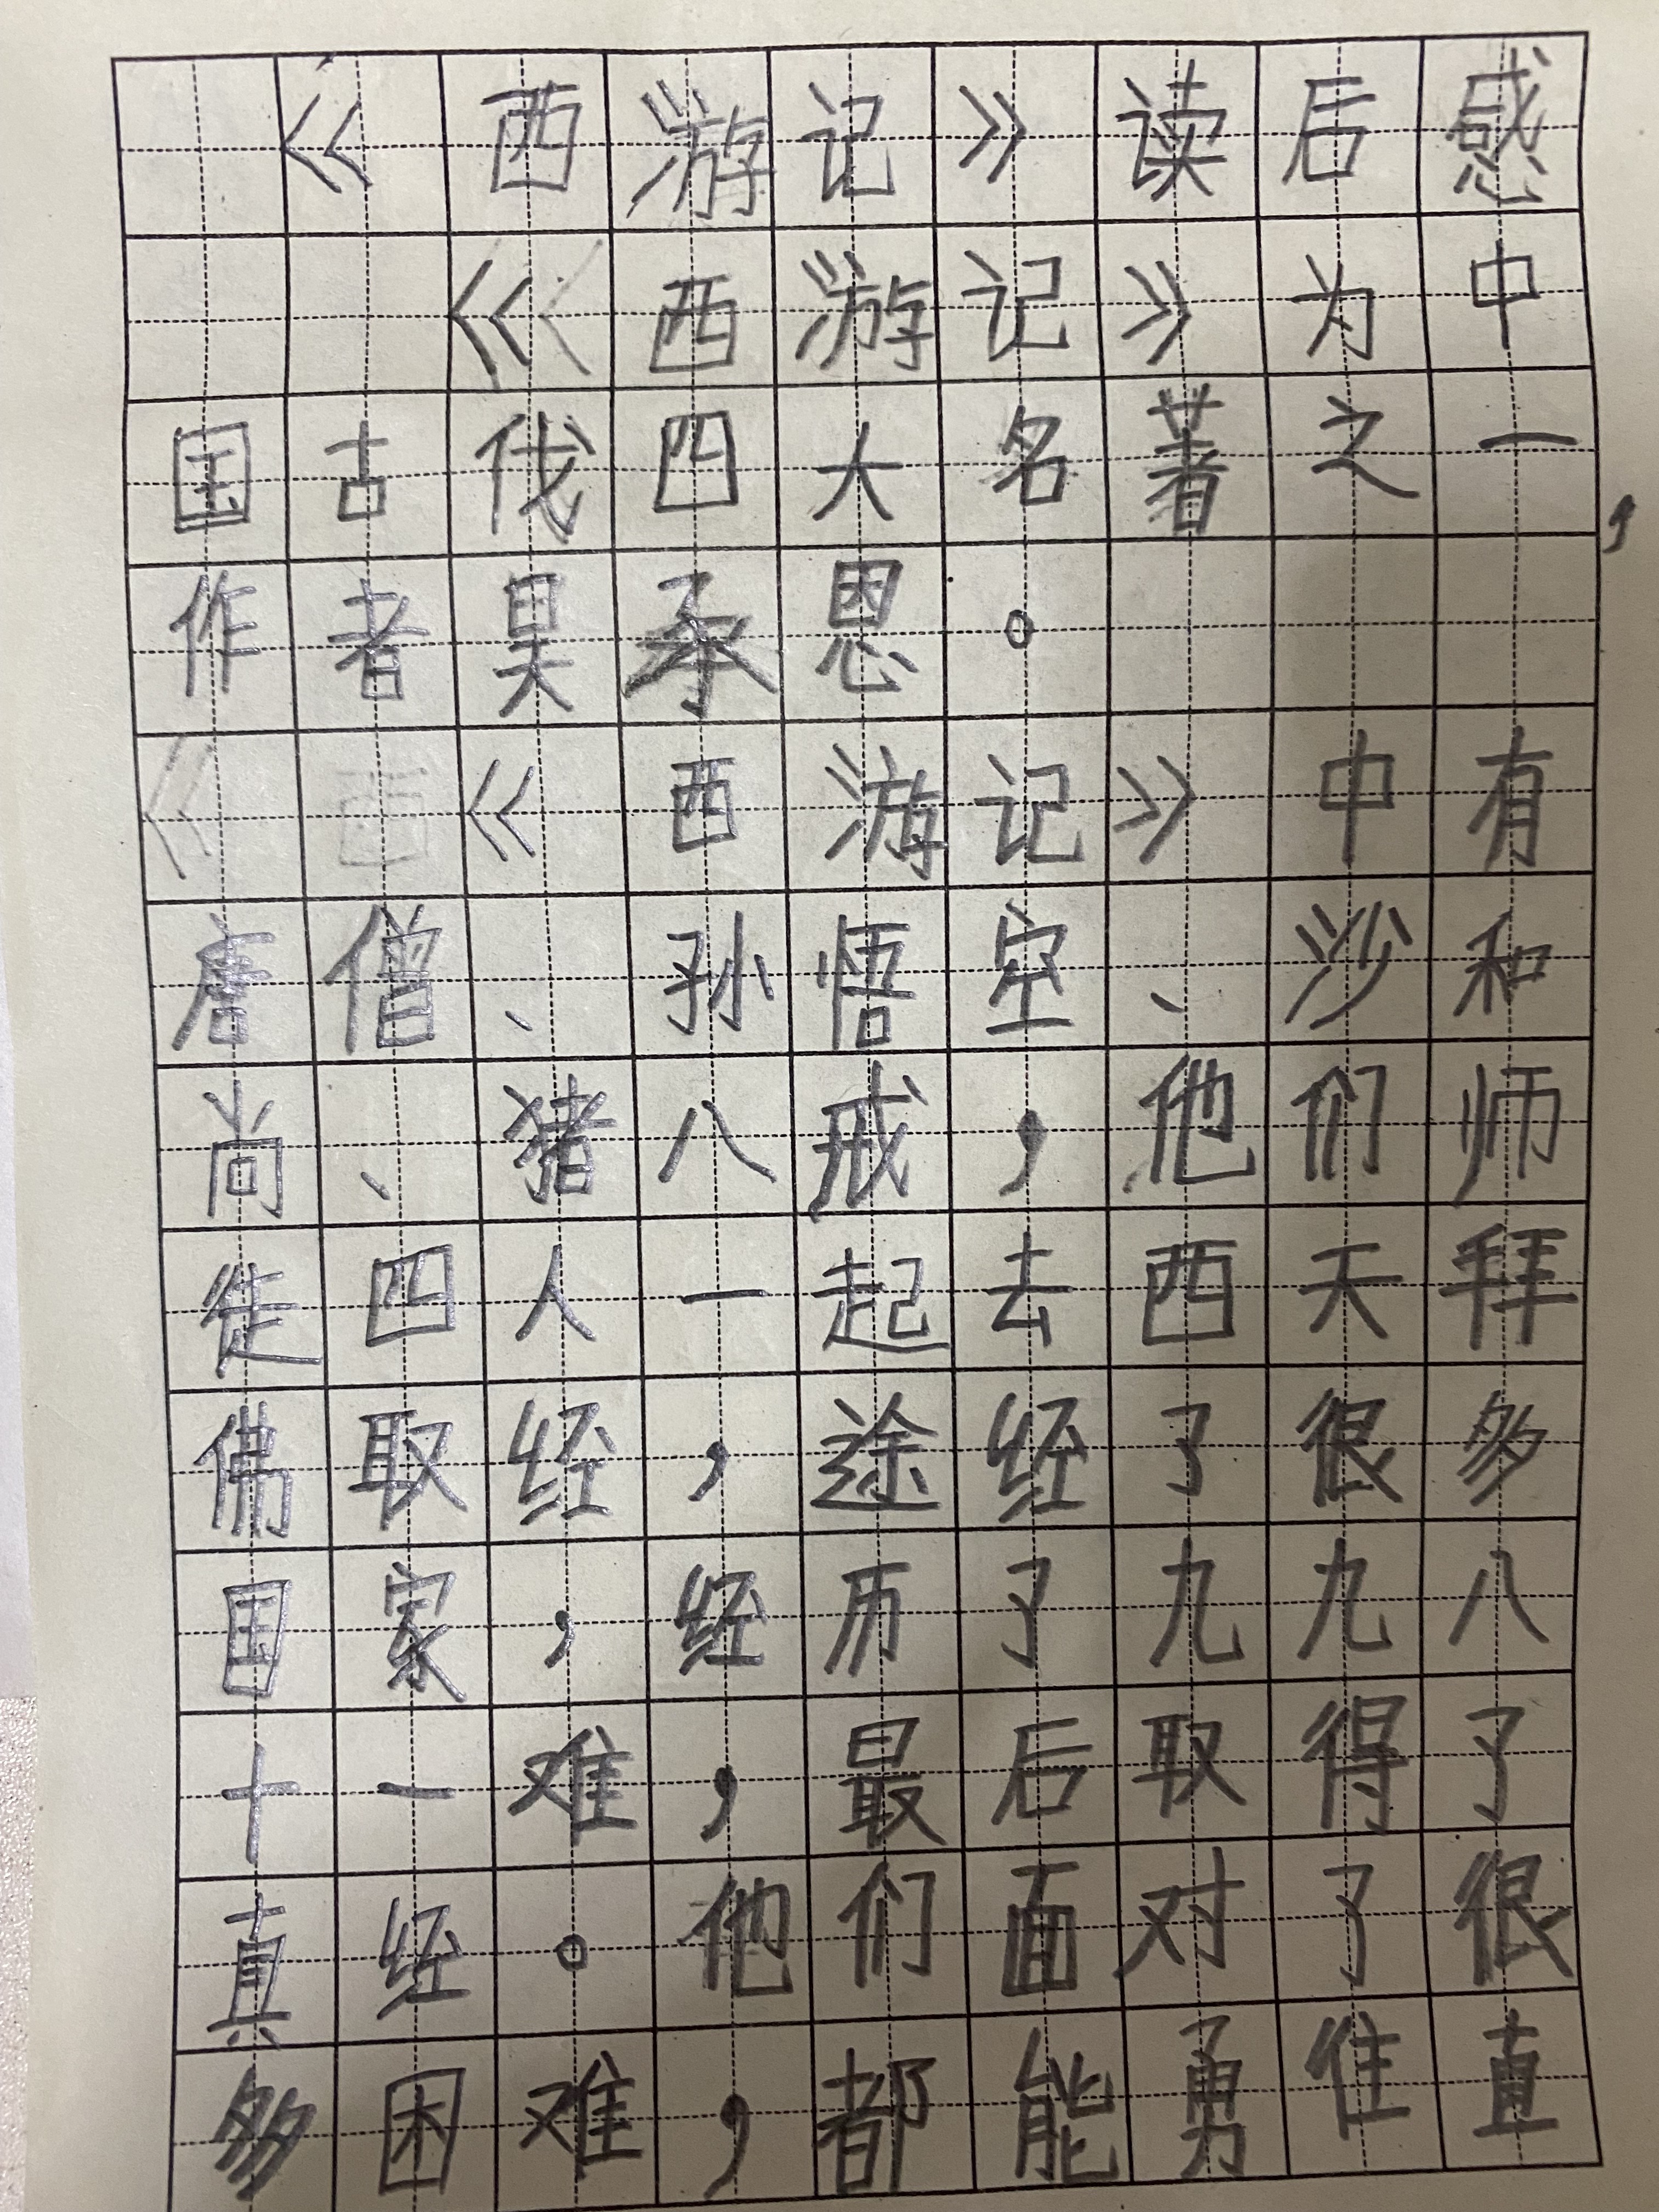 《西游记》读后感
《西游记》为中
国古伐四大名著之一，
作者吴承恩。
《西游记》中有
唐僧、孙悟空、沙和
尚、猪八戒，他们师
徒四人一起去西天拜
佛取经，途经了很多
国家，经历了九九八
十一难，最后取得了
真经。他们面对了很
多困难，都能勇往直